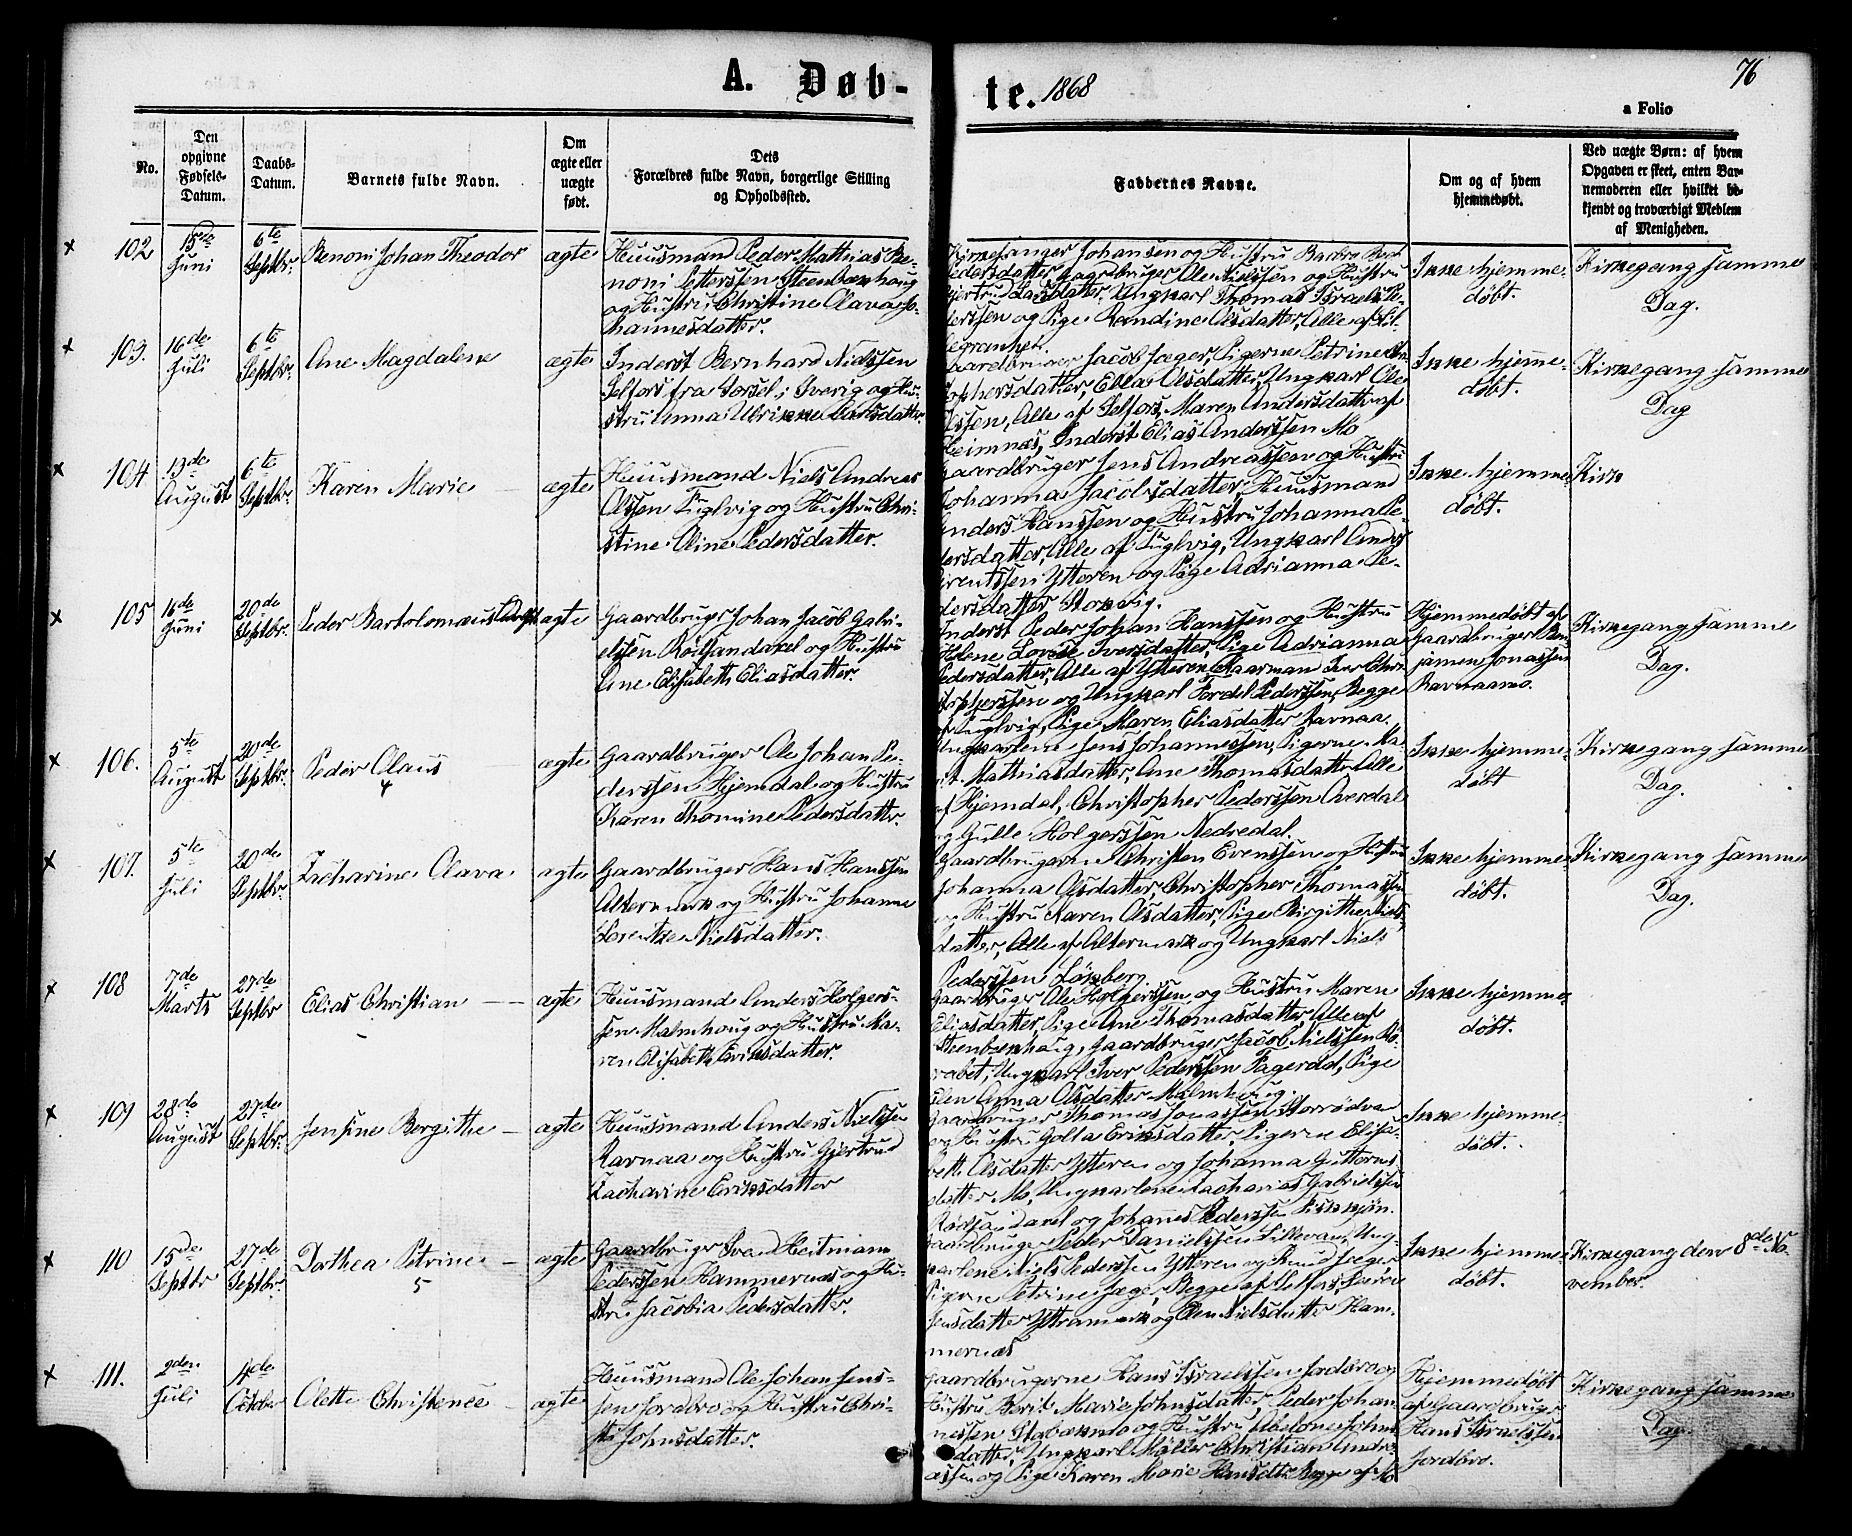 A. Døb-
te. 1868
76
a Folio
No.
Den
opgivne
Fødsels-
Datum.
Daabs-
Datum.
Barnets fulde Navn.
Om
ægte eller
uægte
født.
Dets
Forældres fulde Navn, borgerlige Stilling
og Opholdssted.
Faddernes Navne.
Om og af hvem
hjemmedøbt.
Ved uægte Børn: af hvem
Opgaven er skeet, enten Bar-
nemoderen eller hvilket be-
kjendt og troværdigt Medlem
af Menigheden.
× 102
15de
Juni
6te
Septbr.
Benoni Johan Theodor
ægte
Huusmand Peder Mathias Be-
noni Pettersen Steenbækhaug
og Hustru Christine Olava Jo-
hannesdatter.
Kirkesanger Johansen og Hustru Barbro
Pedersdatter, Gaardbruger Ole Nielssen og Hustru
Gjertrud Larsdatter, Ungkarl Thomas Israel Pe-
derssen og Pige Randine Olsdatter, Alle af
Ikke hjemme-
døbt.
Kirkegang samme
Dag.
× 103.
16de
Juli
6te
Septbr.
Ane Magdalene
ægte
Inderst Bernhard Nielssen
Selfors fra Sorsel i Sverig og Hu-
stru Anna Ulrikke Carlsdatter
Gaardbruger Jacob Jæger, Pigerne Petrine
Ellen Olsdatter, Ungkarl Ole
Olssen, Alle af Selfors, Maren Andersdatter af
Heimnæs, Inderst Elias Anderssen Mo
Ikke hjemme-
døbt.
Kirkegang samme
Dag
× 104
13de
August
6te
Septbr.
Karen Marie
ægte
Huusmand Niels Andreas
Olssen Fuglvig og Hustru Chri-
stine Oline Pedersdatter.
Gaardbruger Jens Andreassen og Hustru
Johanna Jacobsdatter, Huusmand
Anders Hanssen og Hustru Johanna Pe-
dersdatter, Alle af Fuglvig, Ungkarl Anders
Berntssen Ytteren og Pige Adrianna Pe-
dersdatter Storvig.
Ikke hjemme-
døbt.
Kirk
× 105
16de
Juni
20de
Septbr.
Peder Bartolomæus Adolf
ægte
Gaardbruger Johan Jacob Gabri-
elssen Rødsandaxel og Hustru
Line Elisabeth Eliasdatter.
Inderst Peder Johan Hanssen og Hustru
Helene Lovise Iversdatter, Pige Adrianna
Pedersdatter, Alle af Ytteren, Iver Chri-
stopherssen og Ungkarl Fordel Pederssen, Begge
af Fuglvig, Pige Maren Eliasdatter Ravnaa.
Hjemmedøbt af
Gaardbruger Ben-
jamin Jonassen
Ravnaamo.
Kirkegang samme
Dag.
× 106.
5te
August
20de
Septbr.
Peder Olaus
4
ægte
Gaardbruger Ole Johan Pe-
derssen Hjemdal og Hustru
Karen Thomine Pedersdatter.
Ungkarlene Jens Johannessen, Pigerne Ma-
rit Mathiasdatter, Ane Thomasdatter Alle
af Hjemdal, Christopher Pederssen Overdal
og Gulle Holgerssen Nedredal.
Ikke hjemme-
døbt
Kirkegang samme
Dag.
× 107.
5te
Juli
20de
Septbr.
Zacharine Olava
ægte
Gaardbruger Hans Hanssen
Altermark og Hustru Johanna
Lorentze Nielsdatter.
Gaardbrugerne Christen Evenssen og Hustru
Johanna Olsdatter, Christopher Thomassen
og Hustru Karen Olsdatter, Pige Birgitte Niels-
datter, Alle af Altermark og Ungkarl Niels
Pederssen Løkberg
Ikke hjemme-
døbt.
Kirkegang samme
Dag.
× 108
7de
Marts
27de
Septbr
Elias Christian
ægte
Huusmand Anders Holgers-
sen Malmhaug og Hustru Ma-
ren Elisabeth Eriksdatter.
Gaardbruger Ole Holgerssen og Hustru Maren
Eliasdatter, Pige Ane Thomasdatter Alle af
Steenbækhaug, Gaardbruger Jacob Nielssen Rø-
Ungkarl Iver Pederssen Fagerdal, Pige
Ellen Anna Olsdatter Malmhaug.
Ikke hjemme-
døbt.
× 109
28de
August
27de
Septbr.
Jensine Bergithe
ægte
Huusmand Anders Nielssen
Ravnaa og Hustru Gjertrud
Zacharine Eriksdatter
Gaardbruger Thomas Jonassen Storrødvan
og Hustru Golla Eriksdatter, Pigerne Elisa-
beth Olsdatter Ytteren og Johanna Guttorms-
datter Mo, Ungkarlene Zacharias Gabrielssen
Rødsandaxel og Johannes Pederssen
Ikke hjemme-
døbt.
× 110
15de
Septbr
27de
Septbr.
Dorthea Petrine
5
ægte
Gaardbruger Svend Heitmann
Pederssen Hammernæs og Hu-
stru Jacobia Pedersdatter.
Gaardbruger Peder Danielssen Lillevand, Ung-
karlene Niels Pederssen Ytteren og Knud Jæger
Pigerne Petrine Jæger, Begge af Selfors,
Jensdatter Yttramark og Ellen Nielsdatter Ham-
mernæs
Ikke hjemme-
døbt.
Kirkegang den 8de No-
vember.
× 111.
2den
Juli
4de
October
Olette Christence
ægte
Huusmand Ole Johan Jens-
sen Jordbro og Hustru Chri-
sti Johnsdatter.
Gaardbrugerne Hans Israelssen Jordbro og
Hustru Berit Marie Johnsdatter, Peder Johan-
nessen Stabækmo og Hustru Abelone Johns-
datter, Ungkarl Møller Christian Andre-
assen og Pige Karen Marie Hansdtr. Begge af
Hjemmedøbt
af Gaardbruger
Hans Israelssen
Jordbro.
Kirkegang samme
Dag.